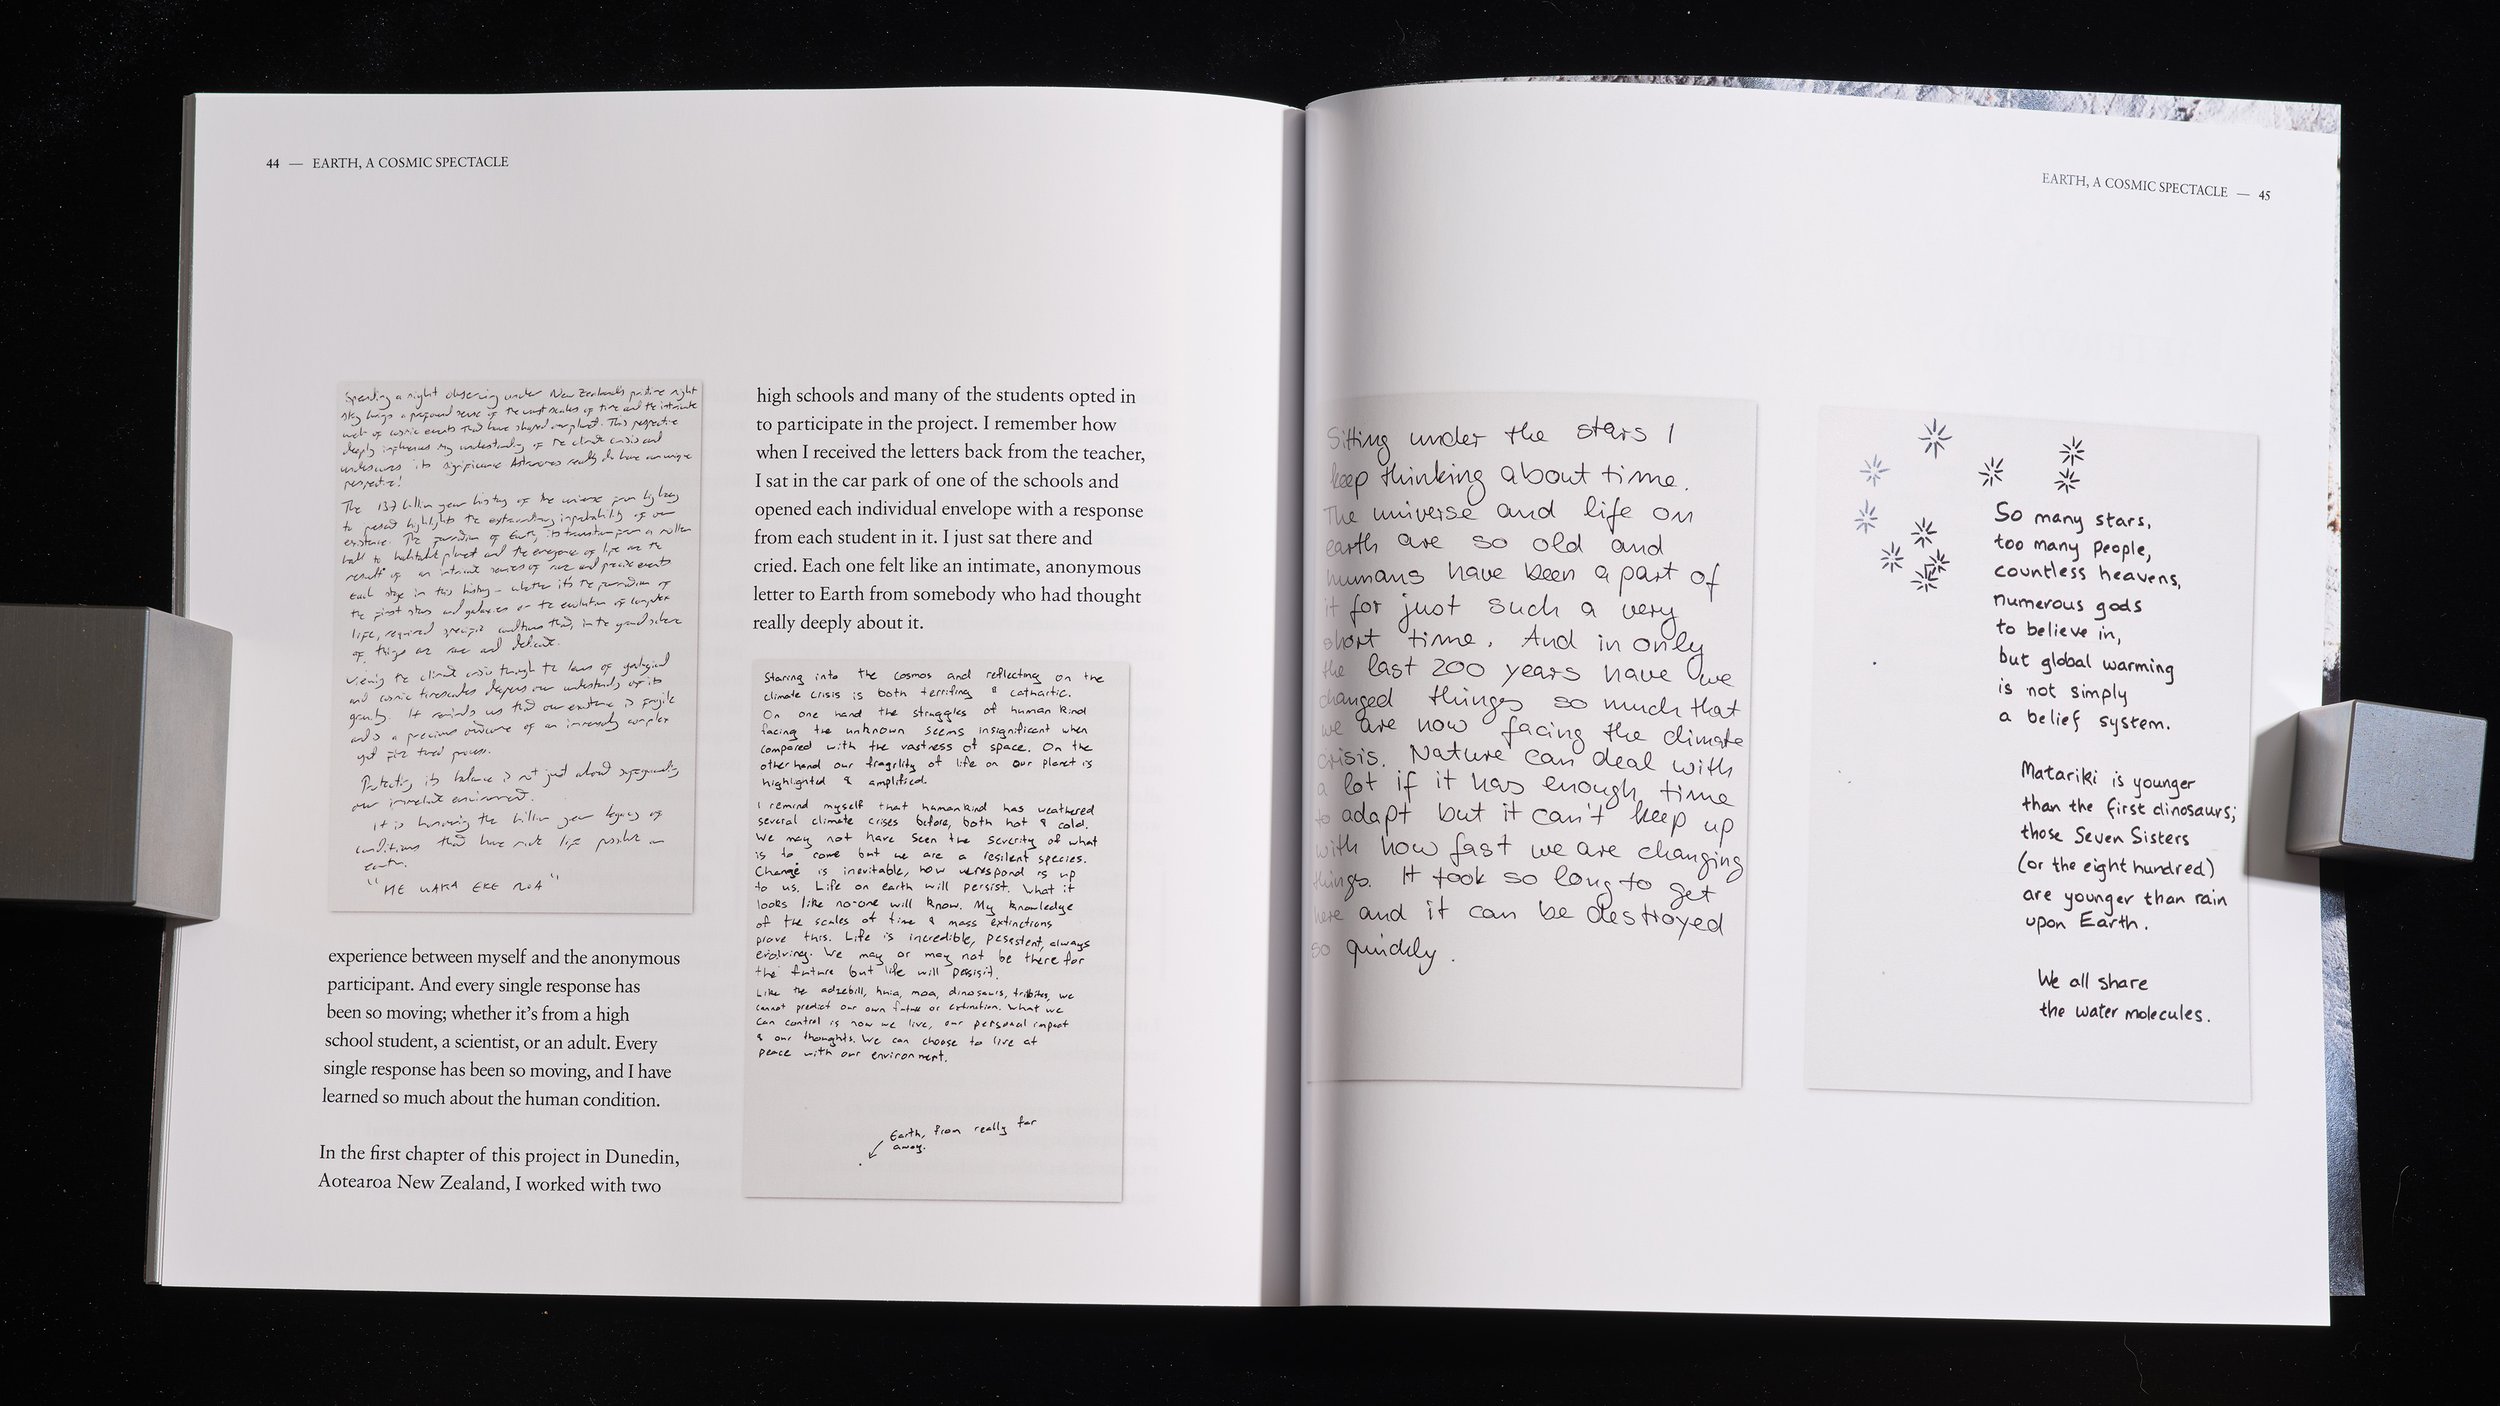 44 — EARTH, A COSMIC SPECTACLE
Spending a night observing under New Zealand's pristine night
sky brings a profound sense of the vast scales of time and the intricate
web of cosmic events that have shaped our planet. This perspective
deeply influences my understanding of the climate crisis and
underscores its significance. Astronomers really do have an unique
perspective!
The 13.7 billion year history of the universe from big bang
to present highlights the extraordinary improbability of our
existence. The formation of Earth, its transition from a molten
ball to habitable planet and the emergence of life are the
result of an intricate series of rare and precise events
each stage in this history – whether it's the formation of
the first stars and galaxies or the evolution of complex
life, required specific conditions that, in the grand scheme
of things are rare and delicate.
Viewing the climate crisis through the lens of geological
and cosmic timescales deepens our understanding of its
gravity. It reminds us that our existence is fragile
and is a precious outcome of an immensely complex
yet fine tuned process.
Protecting its balance is not just about safeguarding
our immediate environment.
It is honouring the billion year legacy of
conditions that have made life possible on
earth.
"HE WAKA EKE NOA"
experience between myself and the anonymous
participant. And every single response has
been so moving; whether it's from a high
school student, a scientist, or an adult. Every
single response has been so moving, and I have
learned so much about the human condition.
In the first chapter of this project in Dunedin,
Aotearoa New Zealand, I worked with two
high schools and many of the students opted in
to participate in the project. I remember how
when I received the letters back from the teacher,
I sat in the car park of one of the schools and
opened each individual envelope with a response
from each student in it. I just sat there and
cried. Each one felt like an intimate, anonymous
letter to Earth from somebody who had thought
really deeply about it.
Staring into the cosmos and reflecting on the
climate crisis is both terrifing & cathartic.
On one hand the struggles of human kind
facing the unknown seems insignificant when
compared with the vastness of space. On the
other hand our fragility of life on our planet is
highlighted & amplified.
I remind myself that humankind has weathered
several climate crises before, both hot & cold.
We may not have seen the severity of what
is to come but we are a resilent species.
Change is inevitable, how we respond is up
to us. Life on earth will persist. What it
looks like no-one will know. My knowledge
of the scales of time & mass extinctions
prove this. Life is incredible, pesestent, always
evolving. We may or may not be there for
the future but life will pesisit.
Like the adzebill, huia, moa, dinosaurs, we
cannot predict our own future or extinction. What we
can control is how we live, our personal impact
& our thoughts. We can choose to live at
peace with our environment.
Earth, from really far
away.
EARTH, A COSMIC SPECTACLE — 45
Sitting under the stars I
keep thinking about time.
The universe and life on
earth are so old and
humans have been a part of
it for just such a very
short time. And in only
the last 200 years have we
changed things so much that
we are now facing the climate
crisis. Nature can deal with
a lot if it has enough time
to adapt but it can't keep up
with how fast we are changing
things. It took so long to get
here and it can be destroyed
so quickly.
So many stars,
too many people,
countless heavens,
numerous gods
to believe in,
but global warming
is not simply
a belief system.
Matariki is younger
than the first dinosaurs;
those Seven Sisters
(or the eight hundred)
are younger than rain
upon Earth.
We all share
the water molecules.